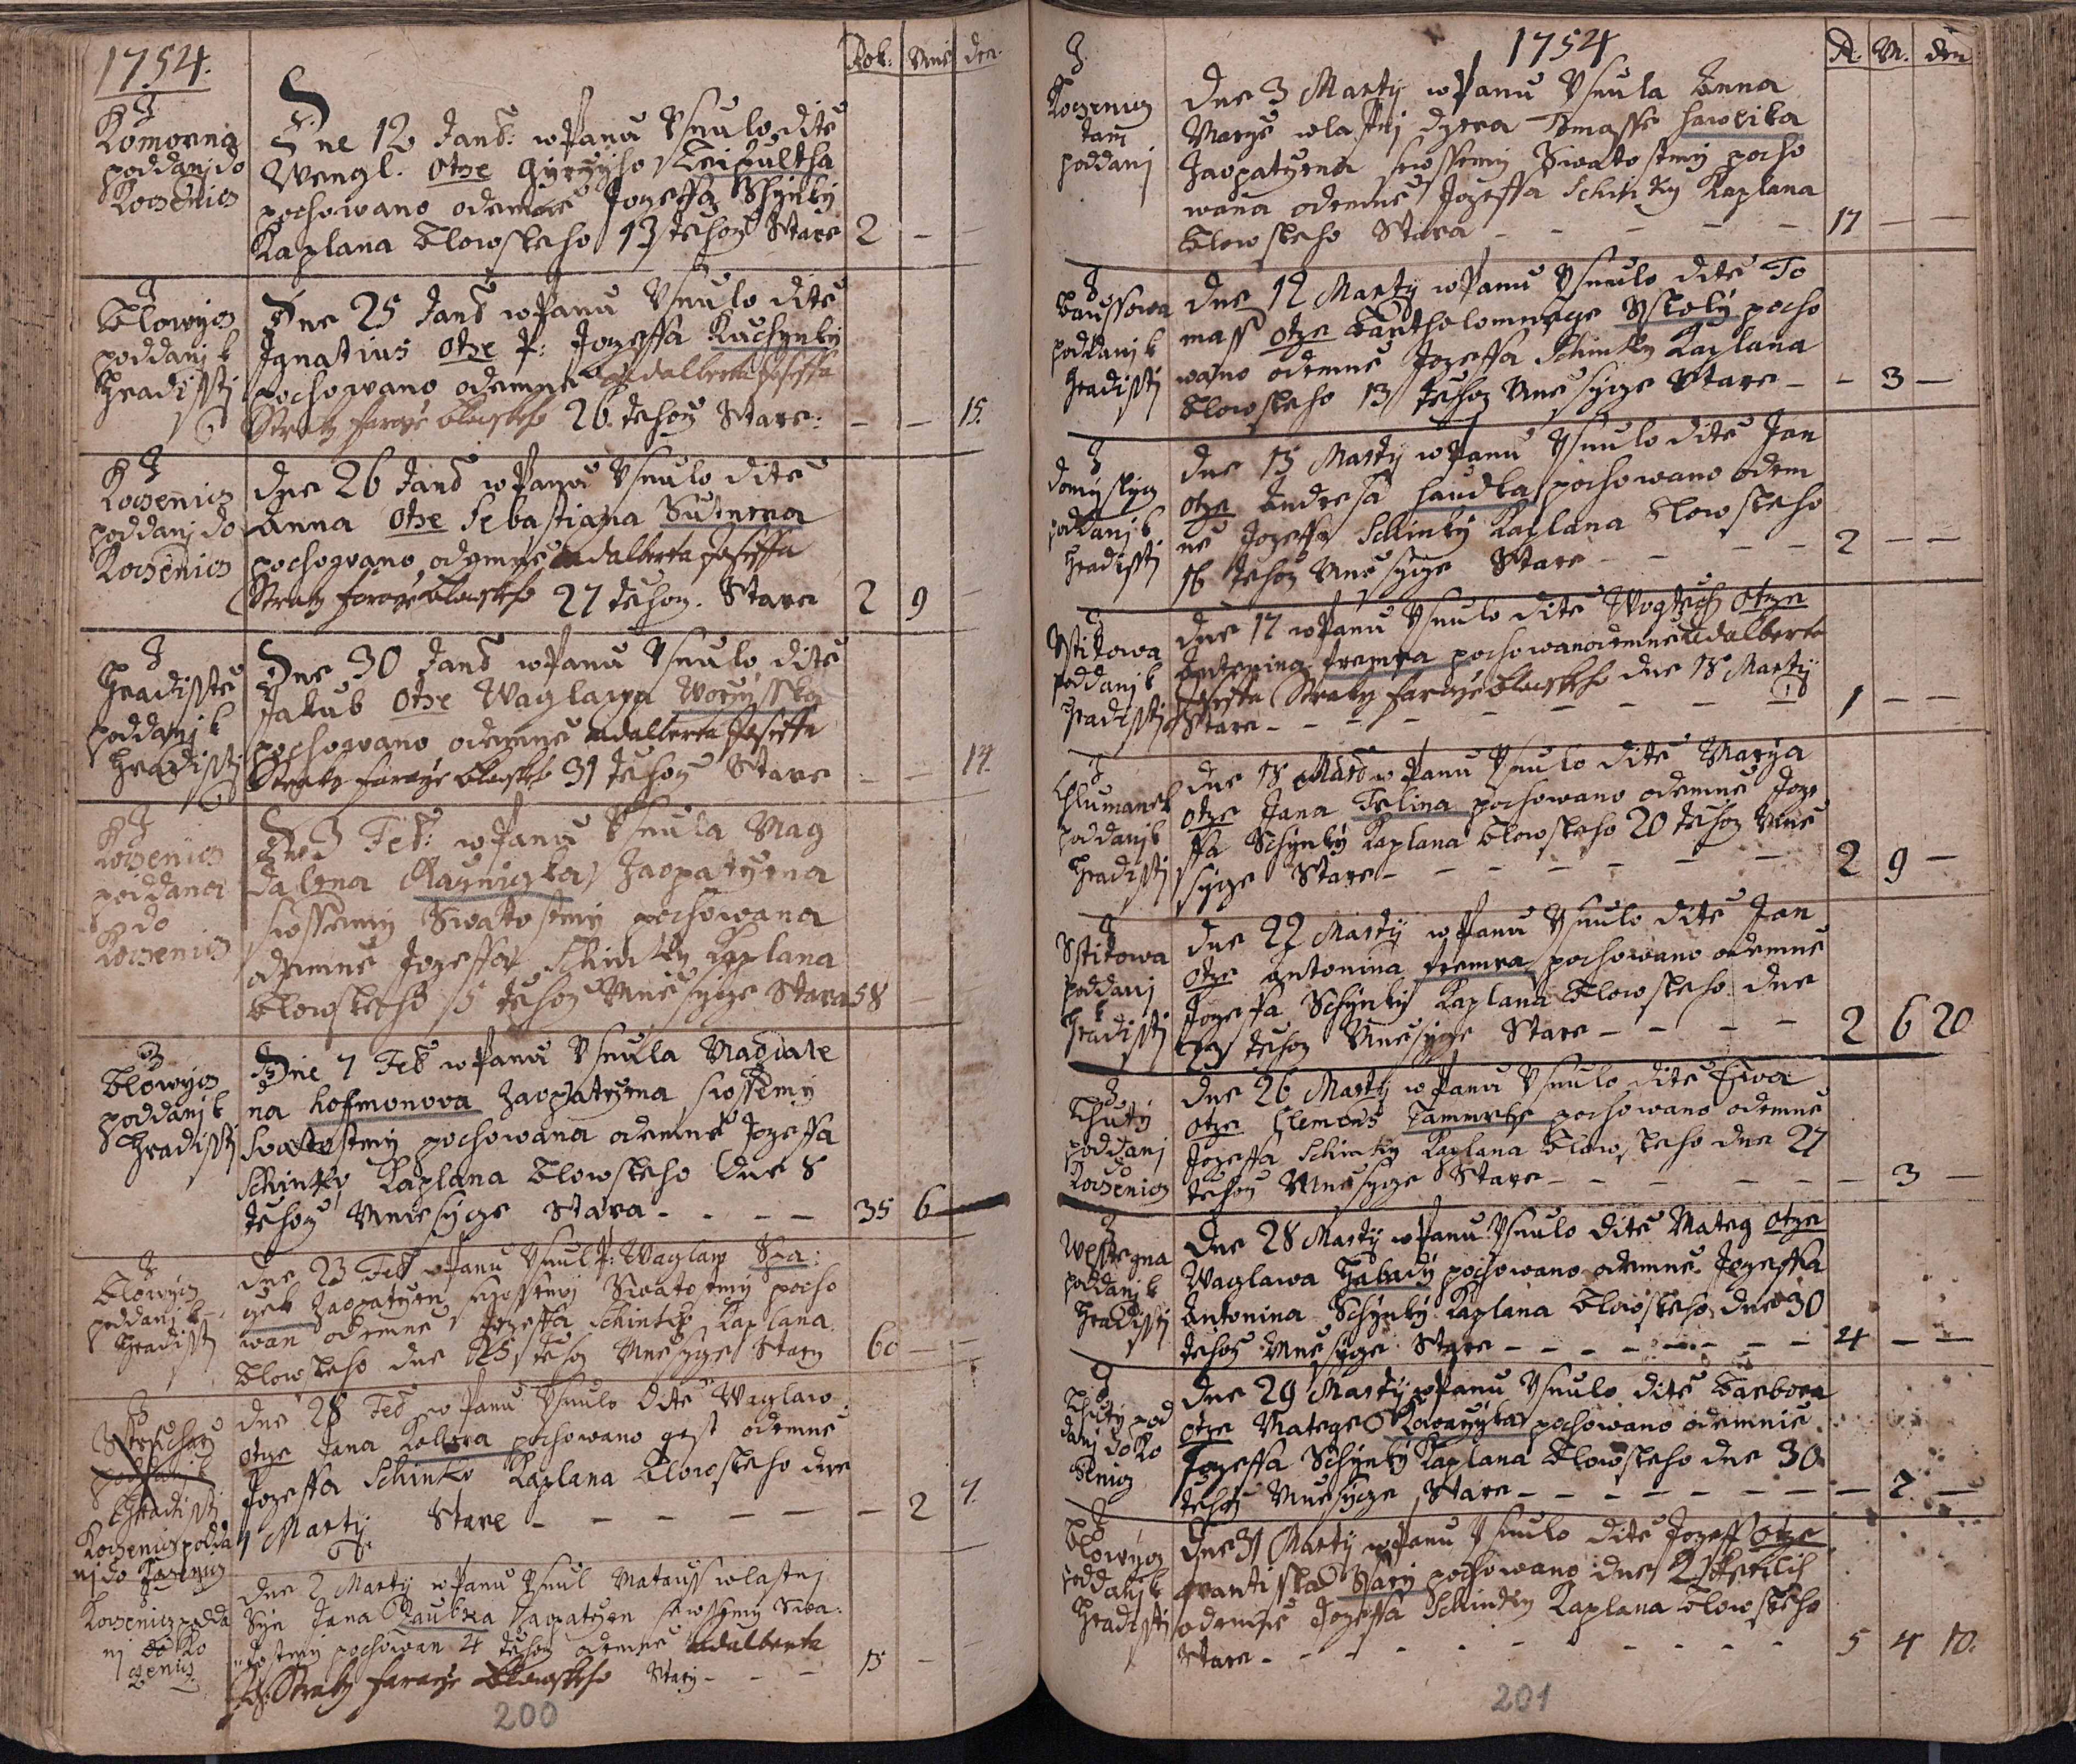 1754.
Rok: Mně den.
Z
Komorna
poddanj do
Koczenicz
Dne 12 Janū: w Panu Usnulo dite
Wengl. Otze Girzyho
pochowano odemne Jozeffa Schynky
Kaplana Blowskeho 13 tehoz Stare 2 – –
Z
Blowycz
poddanj k
Hradissti
Dne 25 Janū w Panu Usnulo dite
Ignatius Otze P: Jozeffa Kuchynky
pochowano odemne Adalberta Joseffa
Straky faraře Blowskeho 26. tehoz Stare: – – 15.
Z
Koczenicz
poddanj do
Koczenicz
Dne 26 Janū w Panu Usnulo dite
Anna Otze Sebastiana
pochowano odemne Adalberta Joseffa
Straky faraře Blowskeho 27 tehoz. Stara 2 9 –
Z
Hradisste
poddanj k
Hradissti
Dne 30 Janū w Panu Usnulo dite
Jakub Otze Waglawa
pochowano odemne Adalberta Joseffa
Straky faraře Blowskeho 31 tehoz Stare – – 14.
Z
Koczenicz
poddana
do
Koczenicz
Dne 3 Feb: w Panu Usnula Mag
dalena Zaopatrzena
swossemy Swatostmy pochowana
odemne Jozeffa Schinky Kaplana
Blowskeho 5 tehoz Mnesycze Stara 58 –
Z
Blowycz
poddanj k
Hradissti
Dne 7 Feb w Panu Usnula Magdale
na Hofmonova Zaopatrzena swossemy
Svatostmy pochowana odemne Jozeffa
Schinky Kaplana Blowskeho Dne 8
tehoz Mnesycze Stara – – – 35 6 –
Z
Blowycz
poddanj k
Hradissti
Dne 23 Feb w Panu Usnul P: Waglaw
Zaopatrzen swossemy Swatostmy pocho
wan odemne Jozeffa Schinky Kaplana
Blowskeho dne 25 tehoz Mnesycze Stary 60 – –
Z
poddanj k
Hradissti
Koczenicz podda
nj do Koczenicz
Dne 28 Feb w Panu Usnulo Dite Waglaw
otze Jana Kolora pochowano gest odemne
Jozeffa Schinky Kaplana Blowskeho dne
1 Martÿ Stare – – – – – – 2 7.
Z
Koczenicz podda
nj do Ko
czenicz
Dne 2 Martÿ w Panu Usnul Matauss wlastnj
Syn Jana Zaopatrzen swossemy Swa:
tostmy pochowan 4 tehoz odemne Adalberta
Jos: Straky faraře Blowskeho Stary – – – 15 –
200
1754
R. M. den
Z
Koczenicz
tam
poddanj
Dne 3 Martÿ w Panu Usnula Anna
Marye wlastnj dczera Tomasse Hawlika
Zaopatrzena swossemy Swatostmy pocho
wana odemne Jozeffa Schinky Kaplana
Blowskeho Stara – – – – – 17 – –
Z
poddanj k
Hradissti
Dne 12 Martÿ w Panu Usnulo dite To
mass otze Bartholomnege pocho
wano odemne Jozeffa Schinky Kaplana
Blowskeho 13 tehoz Mnesycze Stare – – 3 –
Z
Domyslycz
poddanj k
Hradissti
Dne 15 Martÿ w Panu Usnulo dite Jan
otze Andresa Haudka pochowano odem
ne Jozeffa Schinky Kaplana Blowskeho
16 tehoz Mnesycze Stare – – – 2 – –
Z
Sstitowa
poddanj k
Hradissti
Dne 17 w Panu Usnulo dite Wogtech otze
Antonina pochowano odemne Adalberta
Joseffa Straky faraře Blowskeho dne 18 Martÿ
Stare – – – – – – – 1 – –
Z
Chlumanek
poddanj k
Hradissti
Dne 18 Martÿ w Panu Usnulo dite Marya
otze Jana pochowano odemne Joze
ffa Schynky Kaplana Blowskeho 20 tehoz Mne
sycze Stare – – – – – – 2 9 –
Z
Sstitowa
poddanj
k
Hradissti
Dne 22 Martÿ w Panu Usnulo dite Jan
otze Antonina pochowano odemne
Jozeffa Schynky Kaplana Blowskeho dne
23 tehoz Mnesycze Stare – – – – 2 6 20
Z
Zhury
poddanj
do
Koczenicz
Dne 26 Martÿ w Panu Usnulo dite Ewa
otze Clemens pochowano odemne
Jozeffa Schinky Kaplana Blowskeho dne 27
tehoz Mnesycze Stare – – – – – 3 –
Z
poddanj k
Hradissti
Dne 28 Martÿ w Panu Usnulo dite Mateg otze
Waglawa pochowano odemne Jozeffa
Antonina Schynky Kaplana Blowskeho dne 30
tehoz Mnesycze Stare – – – – – – 4 – –
Z
Zhury pod
danj do Ko
czenicz
Dne 29 Martÿ w Panu Usnulo dite Barbora
otze Matege pochowano odemnie
Jozeffa Schynky Kaplana Blowskeho dne 30
tehoz Mnesycze Stare – – – – – – – 2 –
Z
Blowycz
poddanj k
Hradissti
Dne 31 Martÿ w Panu Usnulo dite Jozeff otze
Frantisska pochowano dne 2 Aprilis
odemne Jozeffa Schinky Kaplana Blowskeho
Stare – – – – – – – 5 4 10.
201